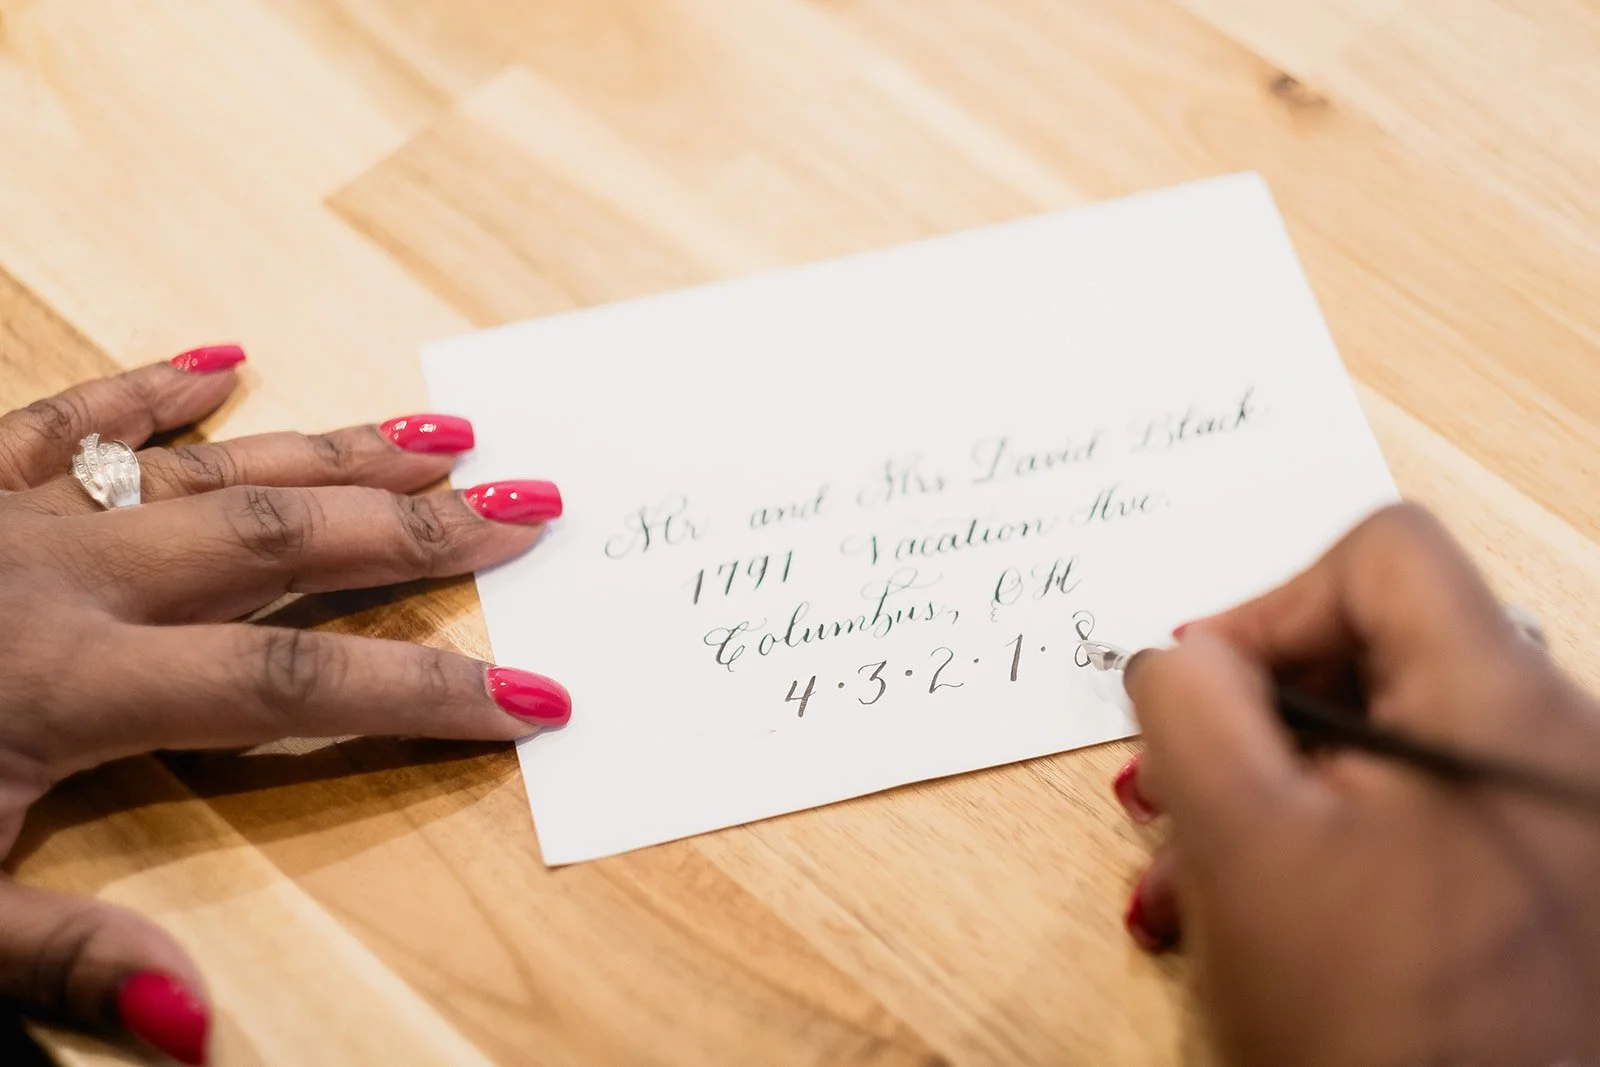 Mr and Mrs David Black
1791 Vacation Ave.
Columbus, OH
4·3·2·1·8